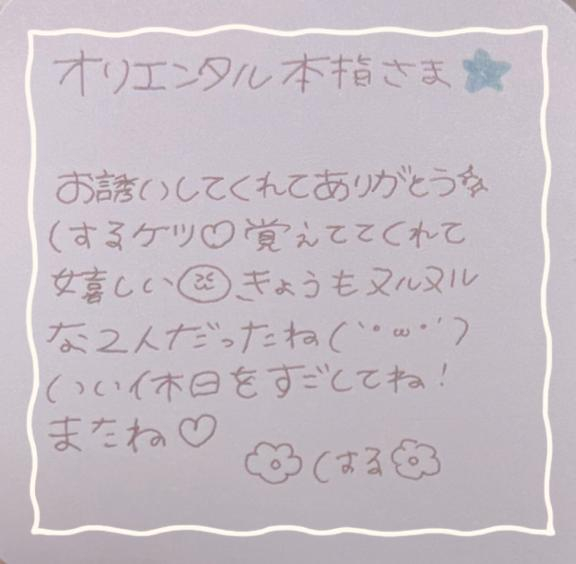 オリエンタル本指さま
お誘いしてくれてありがとう
くするケツ♡覚えててくれて
嬉しい きょうもヌルヌル
な2人だったね(´・ω・`)
いい休日をすごしてね!
またね♡
くする